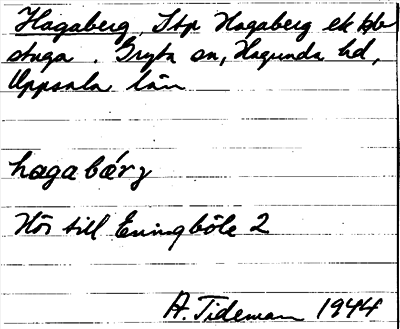 Hagaberg, Stp Hagaberg ek
stuga. Gryta sn, Hagunda hd,
Uppsala län
hagabärj
Hör till Eningböle 2
A. Tideman 1944